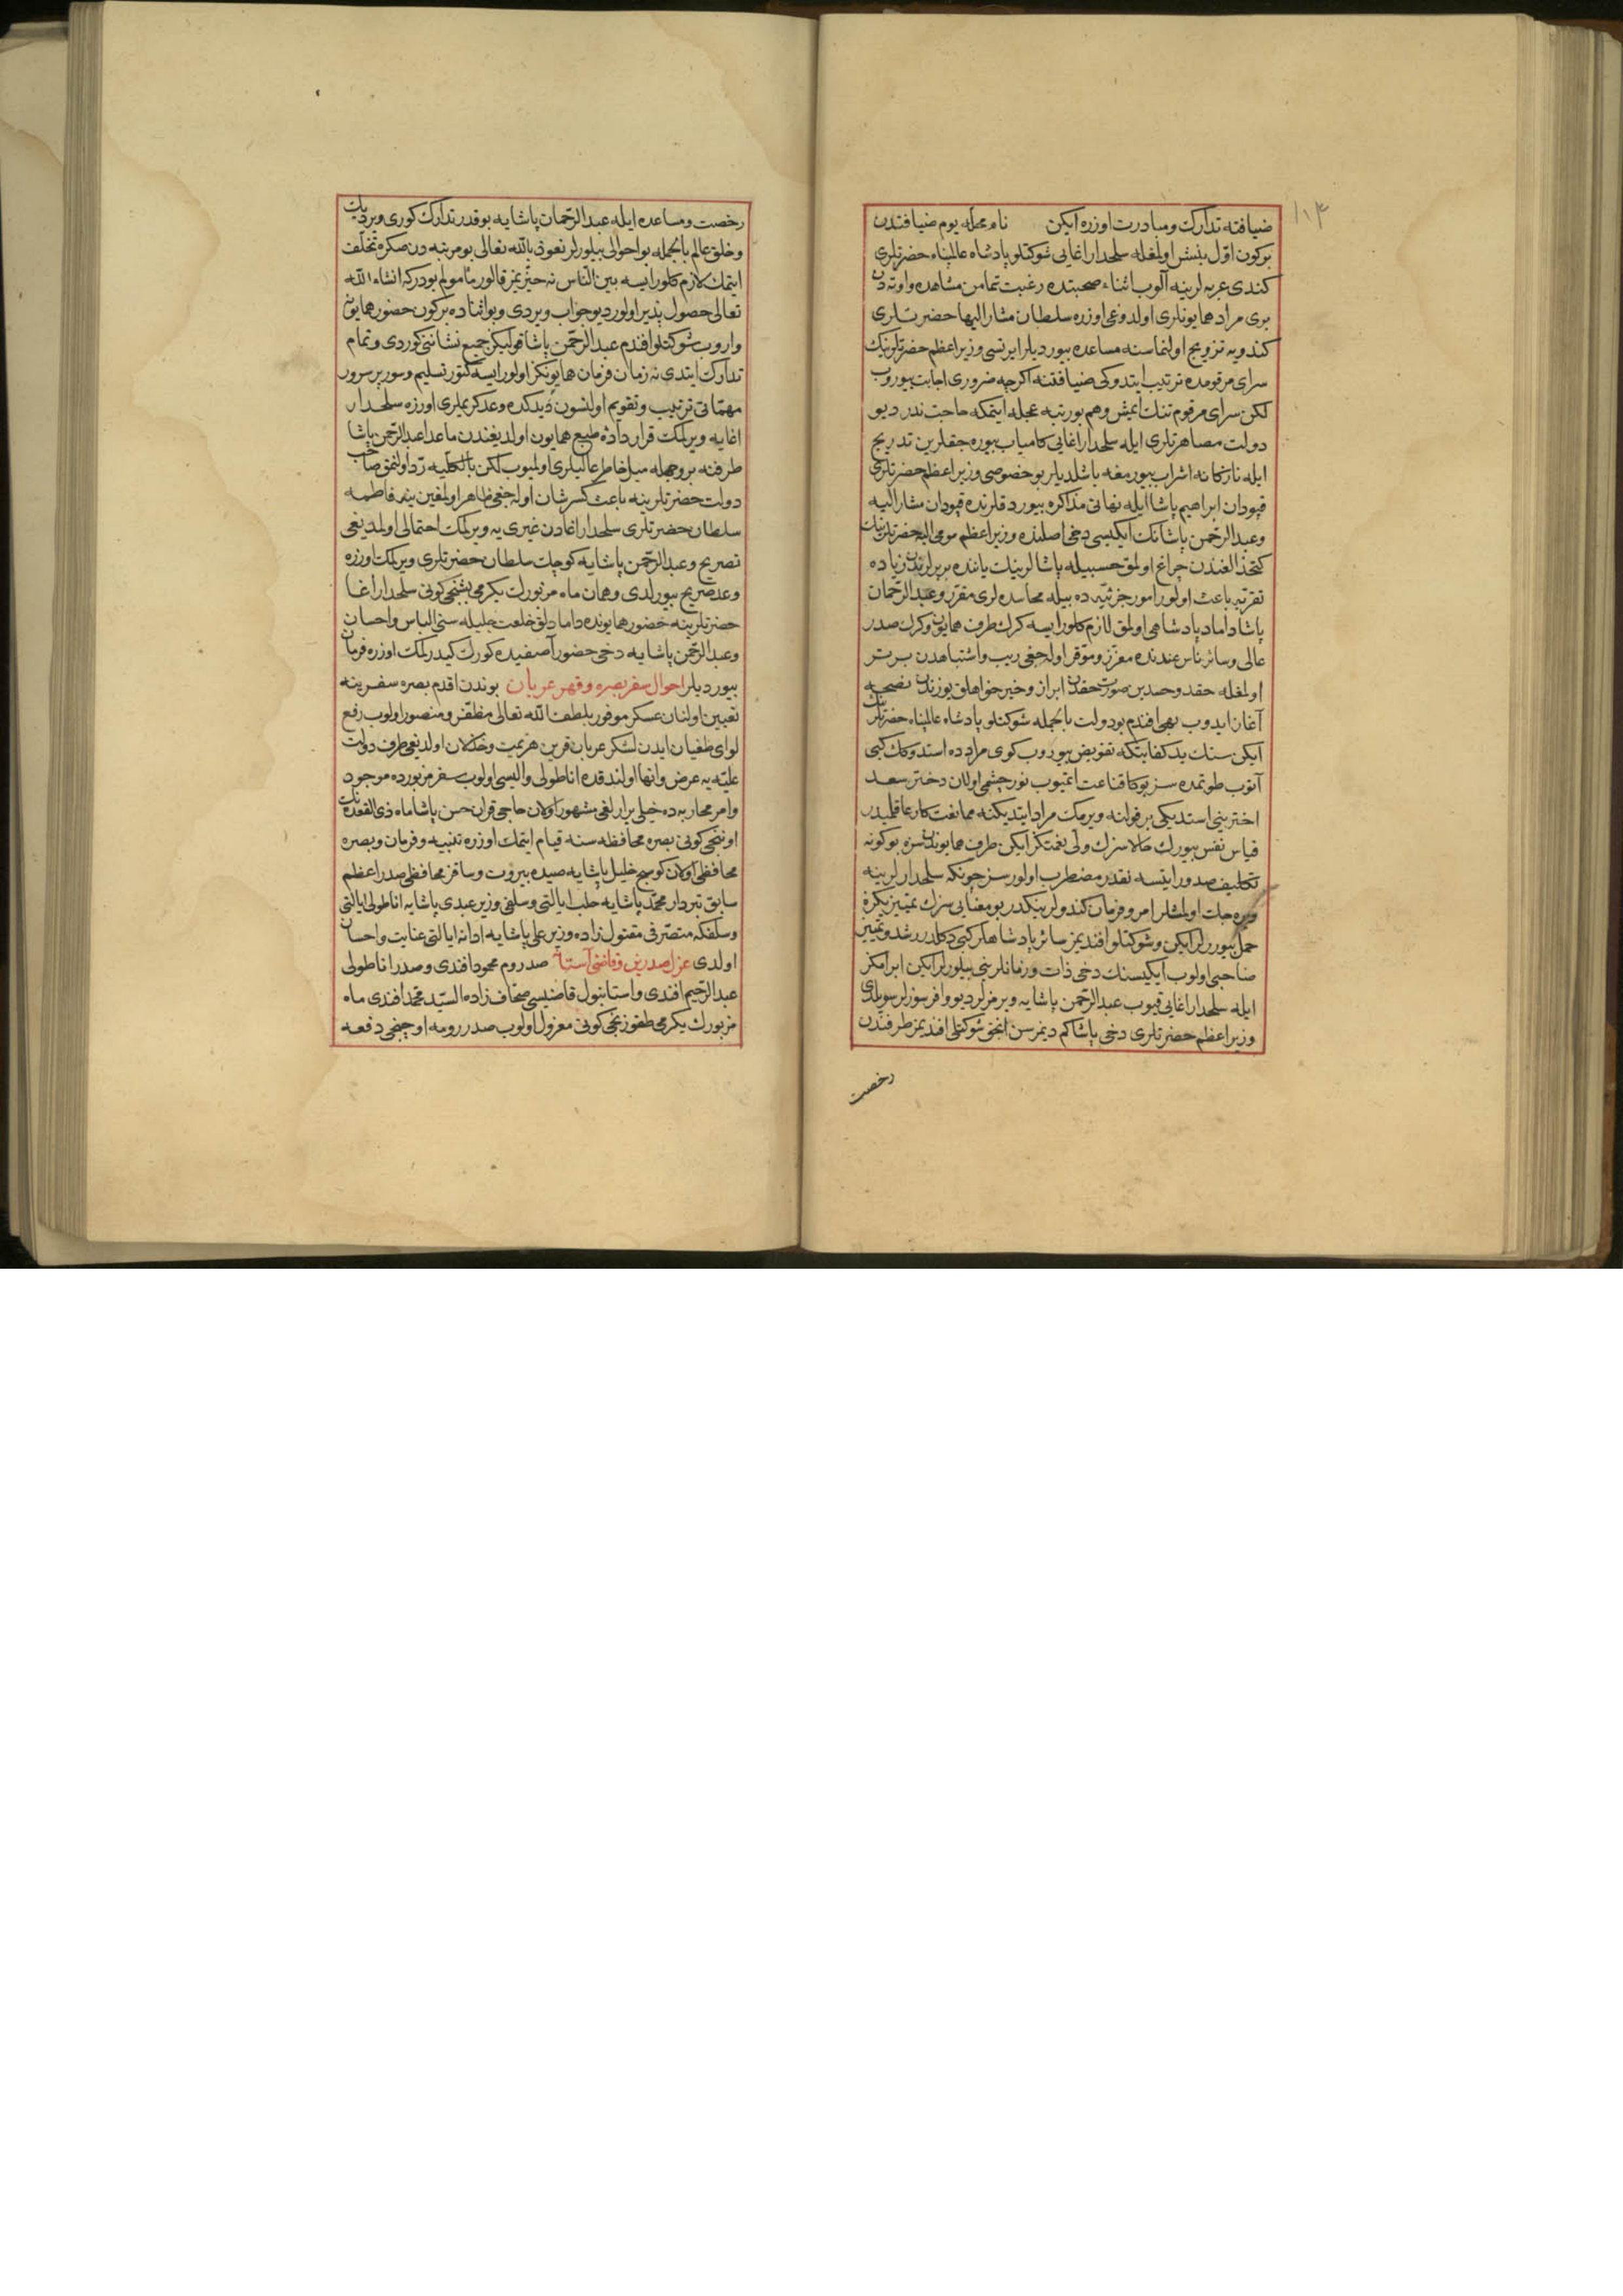 ضيافته تدارك ومبادرت اوزره ايكن نام محله يوم ضيافتدن
بركون اوّل بنش اولمغله سلحدار اغايى شوكتلو پادشاه عالمپناه حضرتلرى
كندى عربه لرينه آلوب اثناء صحبتده رغبت تمامن مشاهده واوته دن
برى مراد همايونلرى اولدوغى اوزره سلطان مشار اليها حضرتلرى
كندويه تزويج اولنماسنه مساعده بيورديلر ايرتسى وزير اعظم حضرتلرينك
سراى مرقومده ترتيب ايتدوكى ضيافتنه اكرچه ضرورى اجابت بيوروب
لكن سراى مرقوم تنك ايمش وهم بورتبه عجله ايتمكه حاجت ندر ديو
دولت مصاهرتلرى ايله سلحدار اغايى كامياب بيوره جقلرين تدريج
ايله نازكانه اشراب بيورمغه باشلديلر بو خصوصى وزير اعظم حضرتلرى
قپودان ابراهيم پاشا ايله نهانى مذاكره بيوردقلرنده قپودان مشار اليه
وعبد الرحمن پاشانك ايكيسى دخى اصلنده وزير اعظم مومى اليه حضرتلرينك
كتخدالغندن چراغ اولمق حسبيله پاشالرينك ياننده بربرلرندن زياده
تقربه باعث اولور امور جزئيه ده بيله محاسده لرى مقرر وعبد الرحمان
پاشا داماد پادشاهى اولمق لازم كلور ايسه كرك طرف همايون وكرك صدر
عالى وسائر ناس عندنده معزز وموقر اوله جغى ريب واشتباهدن برتر
اولمغله حقد وحسدين صورت حقدن ابراز وخير خواهلق يوزندن نصيحته
آغاز ايدوب بهى افندم بودولت بالجمله شوكتلو پادشاه عالمپناه حضرتلرينك
ايكن سنك يد كفايتكه تفويض بيوروب كوى مراده استدوكك كبى
آتوب طوتمده سز بوكا قناعت ايتميوب نور چشمى اولان دختر سعد
اخترينى استديكى برقولنه ويرمك مراد ايتديكنه ممانعت كار عاقلميدر
قياس نفس بيورك حالا سزك ولى نعمتكز ايكن طرف همايوندن سزه بوكونه
تكليف صدور ايتسه نقدر مضطرب اولورسز چونكه سلحدارلرينه
ويره جك اولمشلر امر وفرمان كندولرينكدر بو معنايى سزك تميزيكزه
حمل بيوررلر ايكن وشوكتلو افنديمز سائر پادشاهلر كبى دكلدر رشد وتمييز
صاحبى اولوب ايكيسنك دخى ذات وزمانلرينى بيلورلر ايكن ابرامكز
ايله سلحدار اغايى قيوب عبد الرحمن پاشايه ويرمزلر ديو وافر سوزلر سويلدى
وزير اعظم حضرتلرى دخى پاشاكم ديمرسن انجق شوكتلى افنديمز طرفندن
رخصت
رخصت ومساعده ايله عبد الرحمان پاشايه بوقدر تدارك كورى ويردك
وخلق عالم بالجمله بواحوالى بيلورلر نعوذ بالله تعالى بومرتبه دن صكره تخلف
ايتمك لازم كلور ايسه بين الناس نه حيزيمز قالور مأمولم بودركه انشاء الله
تعالى حصول پذير اولور ديو جواب ويردى وبواثناده بركون حضور همايونه
واروب شوكتلو افندم عبد الرحمن پاشا قولكز جميع نشاننى كوردى وتمام
تدارك ايتدى نه زمان فرمان همايونكز اولور ايسه كتور تسليم وسور پر سرور
مهمّاتى ترتيب وتقويم اولنسون ديدكده وعد كريملرى اوزره سلحدار
اغايه ويرلمك قرار داده طبع همايون اولديغندن ماعدا عبد الرحمن پاشا
طرفنه بروجهله ميل خاطر عاليلرى اولميوب لكن بالكليه ردّ اولنمق صاحب
دولت حضرتلرينه باعث كسر شان اوله جغى ظاهر اولمغين ينه فاطمه
سلطان حضرتلرى سلحدار اغادن غيرى يه ويرلمك احتمالى اولمديغى
تصريح وعبد الرحمن پاشايه كوچك سلطان حضرتلرى ويرلمك اوزره
وعد صريح بيورلدى وهمان ماه مزبورك يكرمى بشنجى كونى سلحدار اغا
حضرتلرينه حضور همايونده دامادلق خلعت جليله سنى الباس واحسان
وعبد الرحمن پاشايه دخى حضور آصفيده كورك كيدرلمك اوزره فرمان
بيورديلر احوال سفر بصره وقهر عربان بوندن اقدم بصره سفرينه
تعيين اولنان عسكر موفور بلطف الله تعالى مظفر ومنصور اولوب رفع
لواى طغيان ايدن لشكر عربان قرين هزيمت وخذلان اولديغى طرف دولت
عليّه يه عرض وانها اولندقده اناطولى واليسى اولوب سفر مزبورده موجود
وامر محاربه ده خيلى برارلغى مشهور اولان حاجى قران حسن پاشا ماه ذى القعده نك
اوننجى كونى بصره محافظه سنه قيام ايتمك اوزره تنبيه وفرمان وبصره
محافظى اولان كوسج خليل پاشايه صيده بيروت وساقز محافظى صدر اعظم
سابق تبردار محمد پاشايه حلب ايالتى وسلفى وزير عبدى پاشايه اناطولى ايالتى
وسلفكه متصرفى مقتول زاده وزير على پاشايه ادانه ايالتى عنايت واحسان
اولدى عزل صدرين وقاضى آستانه صدر روم محمود افندى وصدر اناطولى
عبد الرحيم افندى واستانبول قاضيسى صحاف زاده السيّد محمد افندى ماه
مزبورك يكرمى طقوزنجى كونى معزول اولوب صدر رومه اوچنجى دفعه